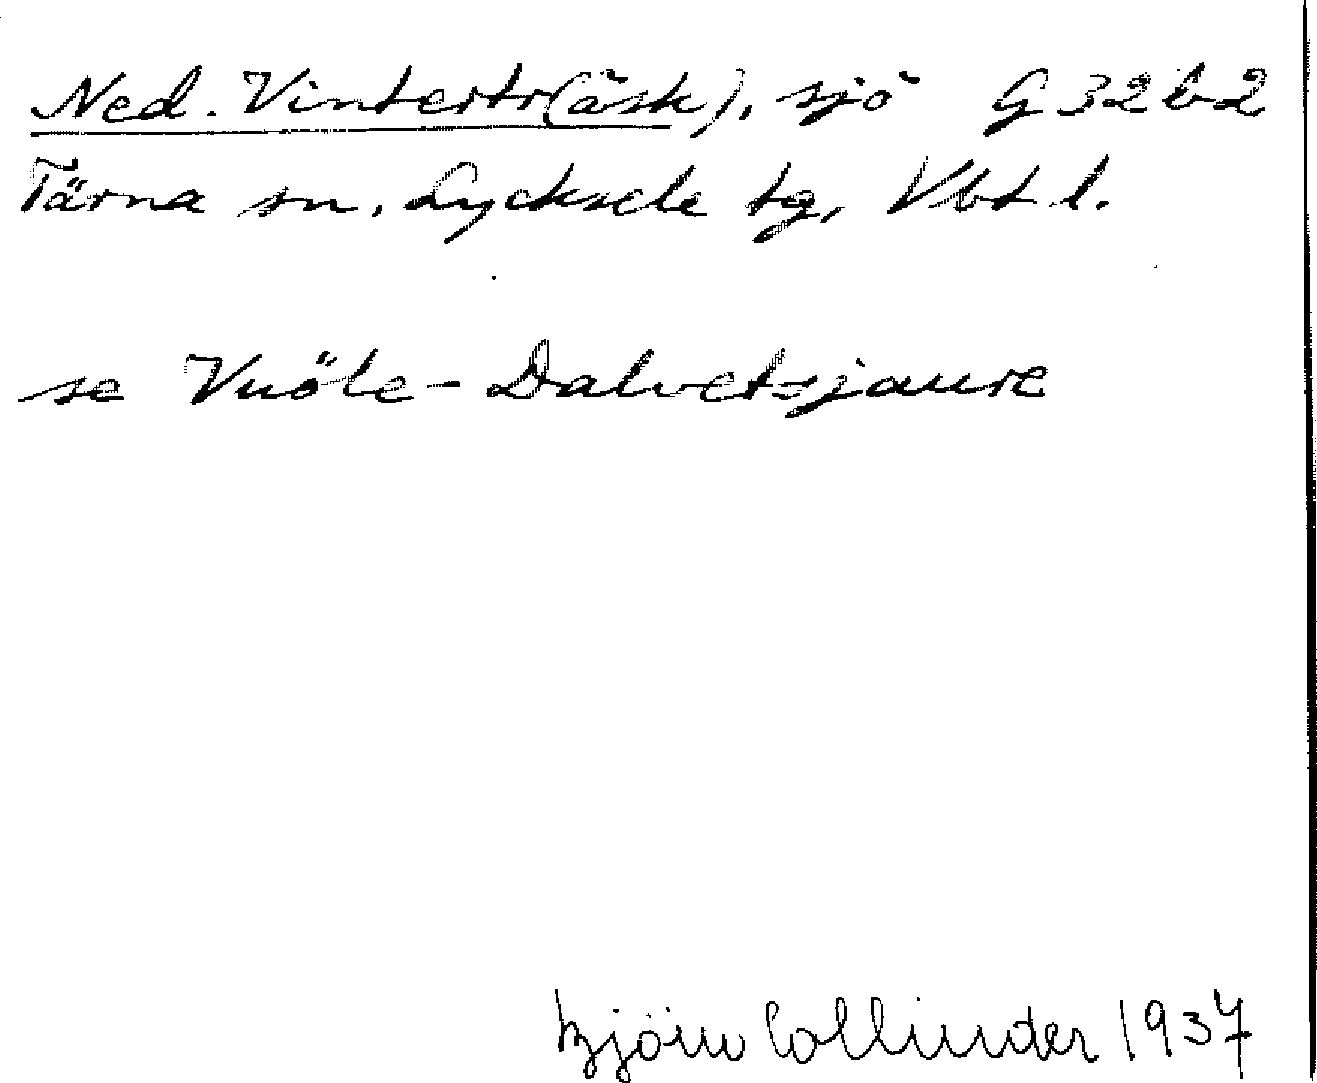 Ned. Vintertr(äsk), sjö G32b2
Tärna sn, Lycksele tg, Vbt l.
se Vuöle-Dalvetsjaure
Björn Collinder 1937